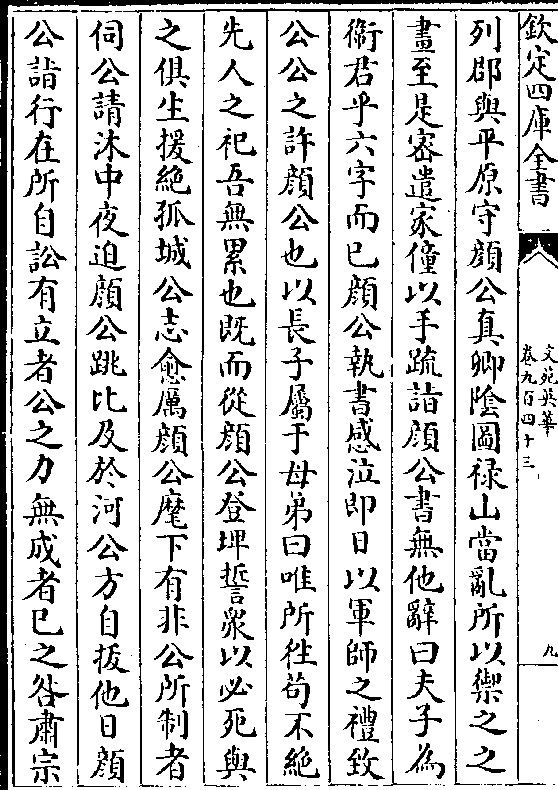 欽定四庫全書
文苑英華
卷九百四十三
九
列郡與平原守顔公真卿陰圖禄山當亂所以禦之之
畫至是宻遣家僮以手疏詣顔公書無他辭曰夫子為
衞君乎六字而已顔公執書感泣即日以軍師之禮致
公公之許顔公也以長子屬于母弟曰唯所徃苟不絶
先人之祀吾無累也既而從顔公登埤誓衆以必死與
之俱生援絶孤城公志愈厲顔公麾下有非公所制者
伺公請沐中夜迫顔公跳比及於河公方自拔他日顔
公詣行在所自訟有立者公之力無成者已之咎肅宗